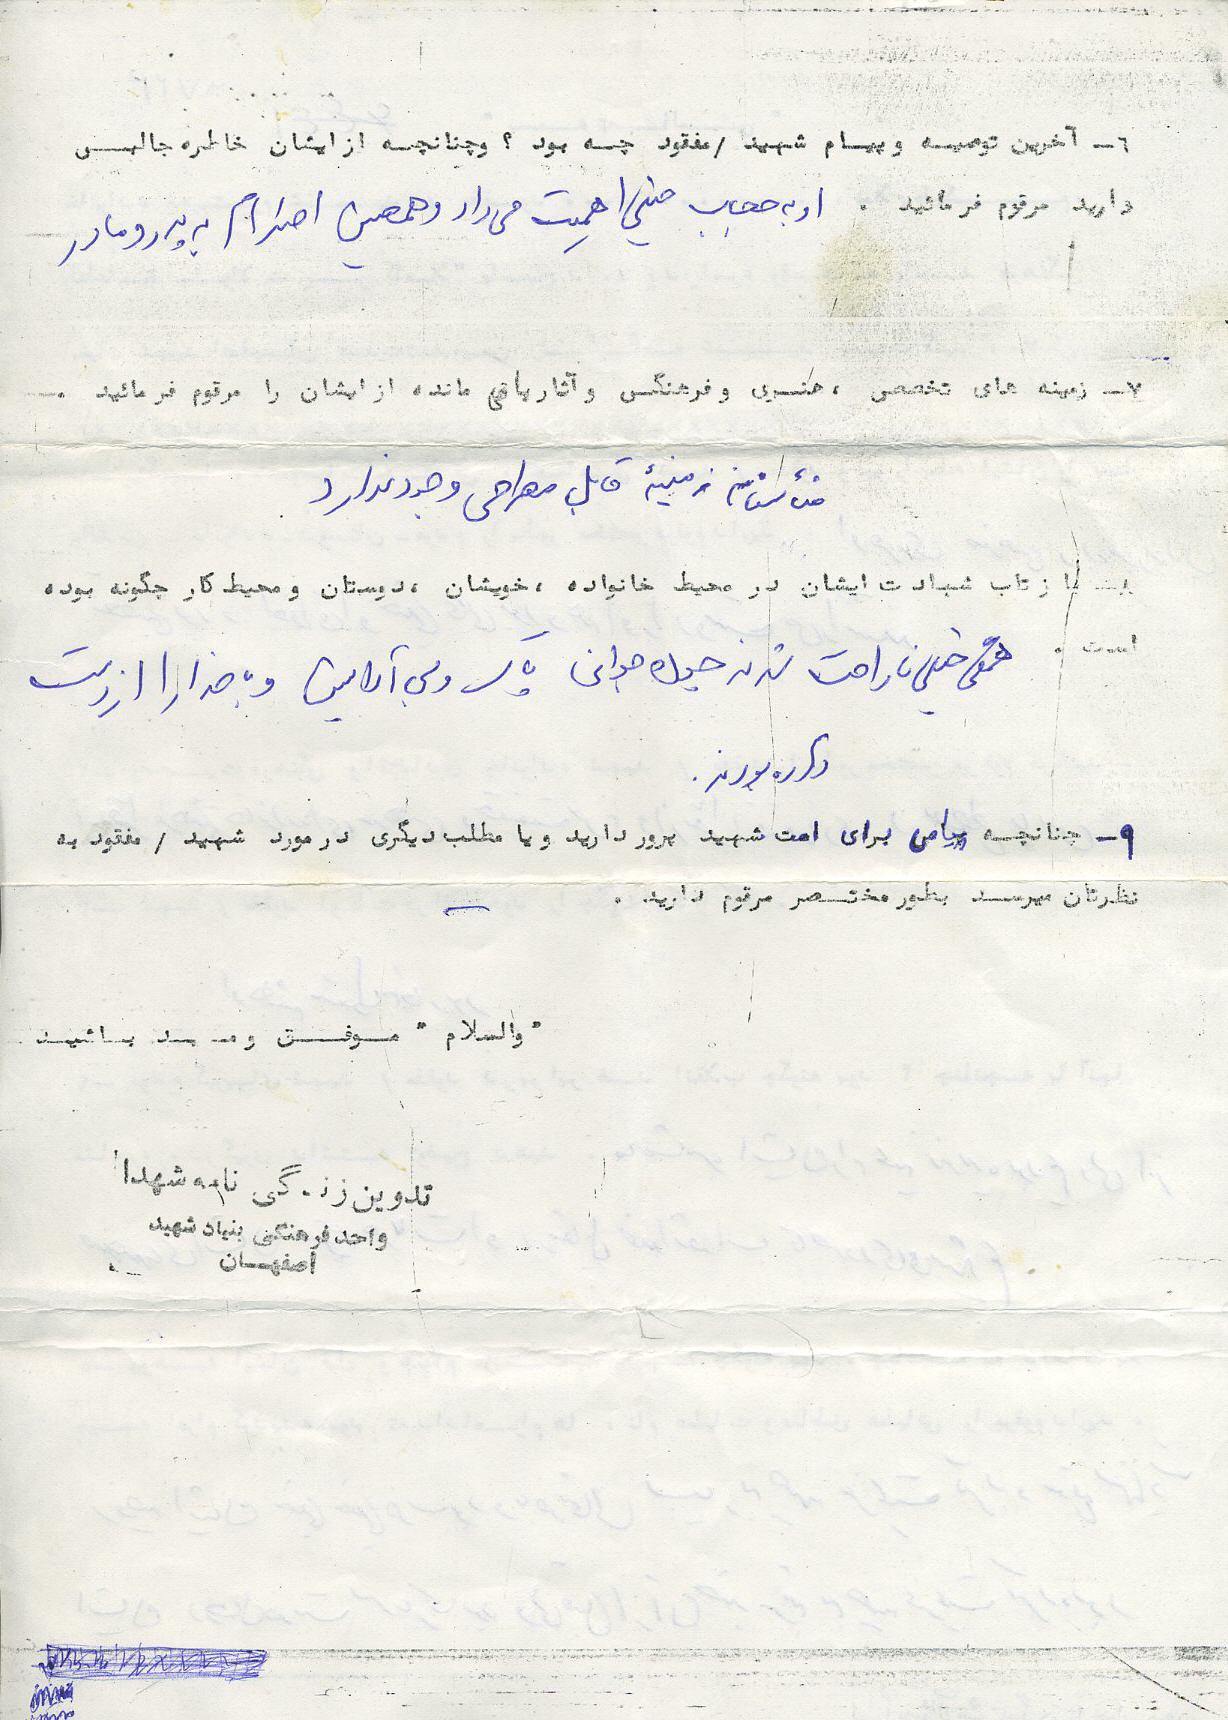 ٦ــ آخرین توصیه و پیام شهید /مفقود چه بود ؟ وچنانچه از ایشان خاطره جالبی
دارید مرقوم فرمائید . او به حجاب خیلی اهمیت می داد و همچنین احترام به پدر و مادر
٧ــ زمینه های تخصصی ، هنری و فرهنگی و آثار باقی مانده از ایشان را مرقوم فرمائید .
متأسفانه زمینهٔ قابل وجود ندارد
٨ــ بازتاب شهادت ایشان در محیط خانواده ، خویشان ، دوستان و محیط کار چگونه بوده
است .
همگی خیلی ناراحت شدند چون جوانی پاک و بی آلایش و با خدا را از دست
داده بودند .
٩ــ چنانچه پیامی برای امت شهید پرور دارید و یا مطلب دیگری در مورد شهید / مفقود به
نظرتان میرسد بطور مختصر مرقوم دارید .
" والسلام " موفق و باشید
تدوین زندگی نامه شهدا
واحد فرهنگی بنیاد شهید
اصفهان